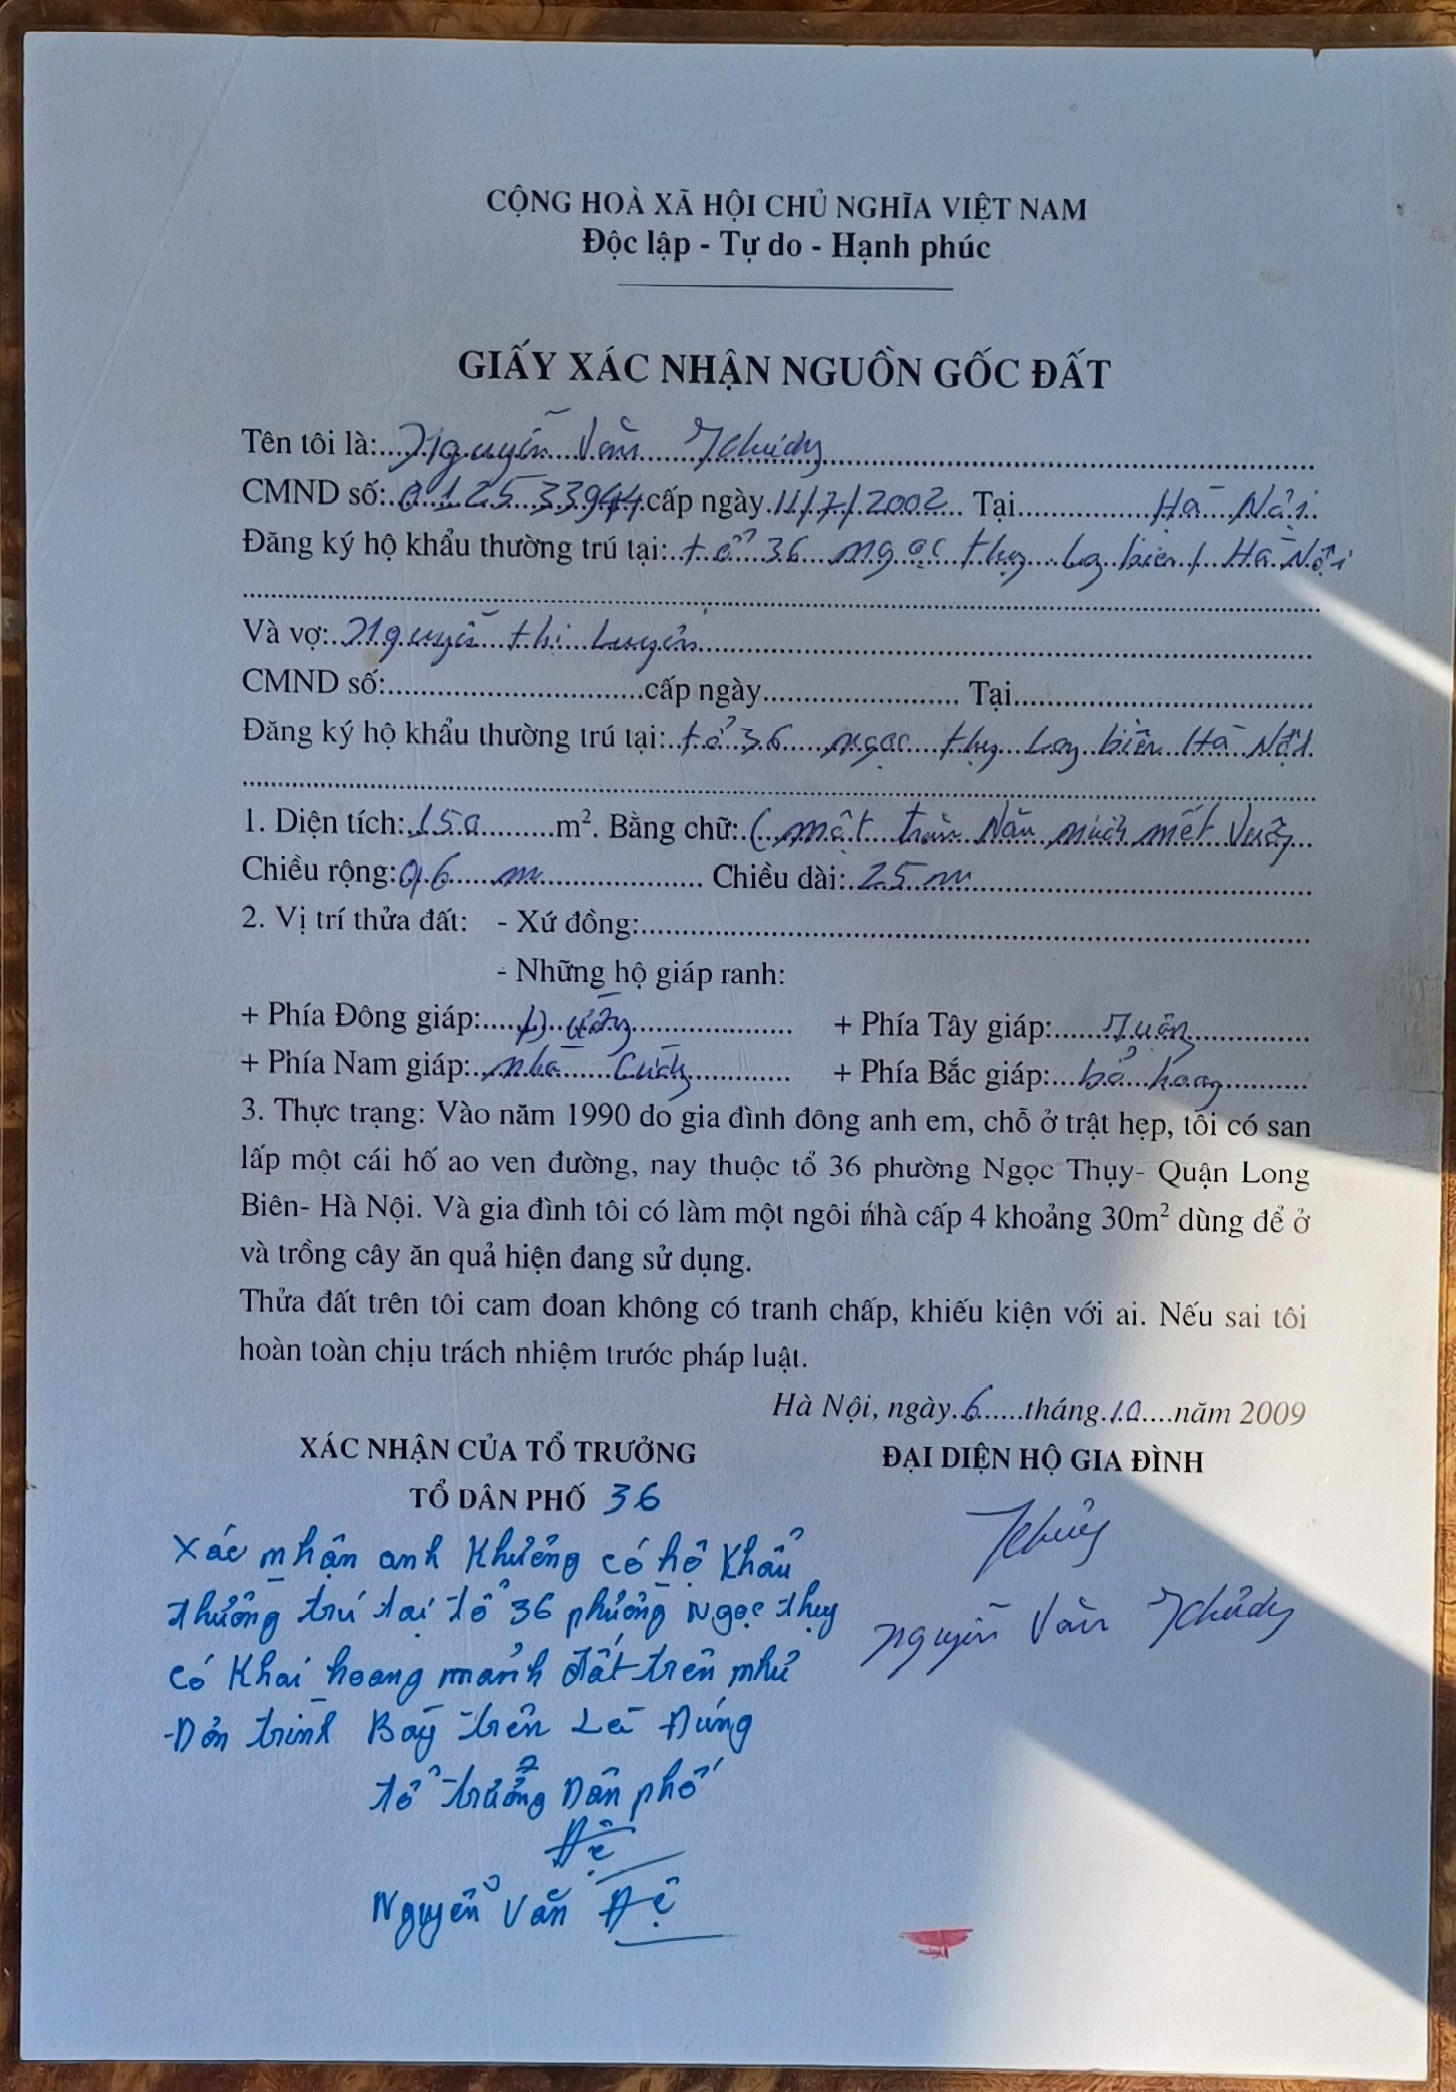 CỘNG HOÀ XÃ HỘI CHỦ NGHĨA VIỆT NAM
Độc lập - Tự do - Hạnh phúc
GIẤY XÁC NHẬN NGUỒN GỐC ĐẤT
Tên tôi là: Nguyễn Văn
CMND số: 012533944 cấp ngày 11/7/2002 Tại Hà Nội
Đăng ký hộ khẩu thường trú tại: tổ 36 ngọc thụy Lg biên / Hà Nội
Và vợ: Nguyễn thị Luyến
CMND số: cấp ngày Tại
Đăng ký hộ khẩu thường trú tại: tổ 36 ngọc thụy Log biên Hà Nội
1. Diện tích: 150 m². Bằng chữ: ( một trăm Năm mươi mét Vuông
Chiều rộng: 06 m Chiều dài: 25 m
2. Vị trí thửa đất: - Xứ đồng:
- Những hộ giáp ranh:
+ Phía Đông giáp: Đường + Phía Tây giáp:
+ Phía Nam giáp: nhà + Phía Bắc giáp: bỏ hoang
3. Thực trạng: Vào năm 1990 do gia đình đông anh em, chỗ ở trật hẹp, tôi có san
lấp một cái hố ao ven đường, nay thuộc tổ 36 phường Ngọc Thụy- Quận Long
Biên- Hà Nội. Và gia đình tôi có làm một ngôi nhà cấp 4 khoảng 30m² dùng để ở
và trồng cây ăn quả hiện đang sử dụng.
Thửa đất trên tôi cam đoan không có tranh chấp, khiếu kiện với ai. Nếu sai tôi
hoàn toàn chịu trách nhiệm trước pháp luật.
Hà Nội, ngày 6 tháng 10 năm 2009
XÁC NHẬN CỦA TỔ TRƯỞNG ĐẠI DIỆN HỘ GIA ĐÌNH
TỔ DÂN PHỐ 36
Xác nhận anh Khưởng có hộ khẩu
thường trú tại tổ 36 phường Ngọc thụy
có Khai hoang mảnh đất trên như
Đơn trình Bày trên Là Đúng
tổ trưởng Dân phố
Đệ
Nguyễn Văn Đệ
Nguyễn Văn